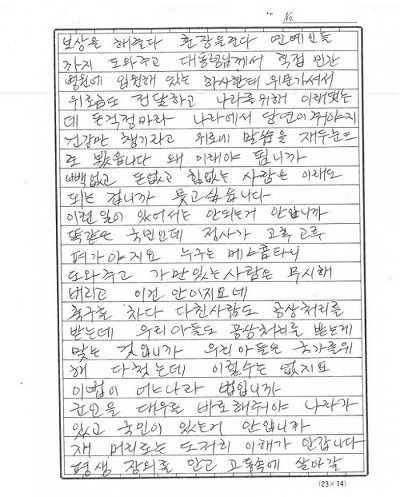 No.
보상을 해준다 훈장을준다 연예인들
까지 도와주고 대통령님께서 직접 민간
병원에 입원해 있는 하사한태 위문가셔서
위로금도 전달하고 나라를위해 이래됏는
데 돈걱정마라 나라에서 당연이주야지
건강만 챙기라고 위로에 말씀을 재두눈으
로 봤읍니다 왜 이래야 됩니까
빽없고 돈없고 힘없는 사람은 이래도
되는 겁니까 묻고싶읍니다
이런일이 있어서는 안되는거 안입니까
똑같은 국민인데 정사가 고륵고루
펴가야지요 누구는 메스콤타니
도와주고 가만있는사람은 무시해
버리고 이건 안이지요 데
축구를 차다 다친사람도 공상처리를
받는데 우리아들도 공상처리를 받는게
맞는 것입니까 우리아들은 국가를위
해 다첬는데 이럴수는 없지요
이법이 어느나라 법입니까
군인을 대우를 바로해주야 나라가
있고 국민이 있는거 안입니까
재 머리로는 도저히 이해가 안갑니다
평생 장의로 안고 고통속에 살아갈
(23×14)